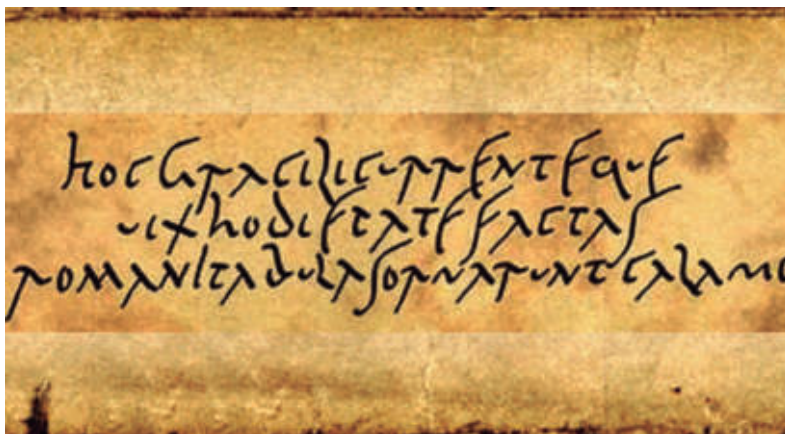 hocgracilicurrenteque
uixhodiepatefactas
romanitabulasornaruntcalamo